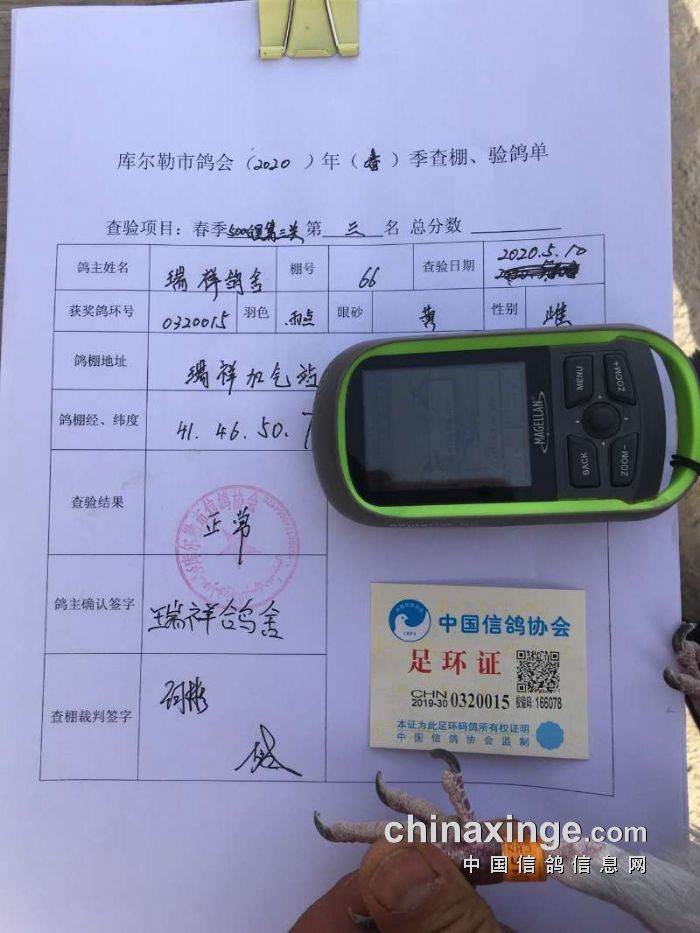 库尔勒市鸽会（2020）年（春）季查棚、验鸽单
查验项目：春季500公里第三关 第 三 名 总分数
鸽主姓名 瑞祥鸽舍 棚号 66 查验日期 2020.5.10
获奖鸽环号 0320015 羽色 雨点 眼砂 黄 性别 雌
鸽棚地址 瑞祥加气站
鸽棚经、纬度 41.46.50.7
查验结果 正常
库尔勒市信鸽协会
鸽主确认签字 瑞祥鸽舍
查棚裁判签字
MAGELLAN
MENU
ZOOM+
BACK
ZOOM-
中国信鸽协会
足环证
CHN
2019-30 0320015 校验码: 166078
本证为此足环码鸽所有权证明
中国信鸽协会监制
chinaxinge.com
中国信鸽信息网